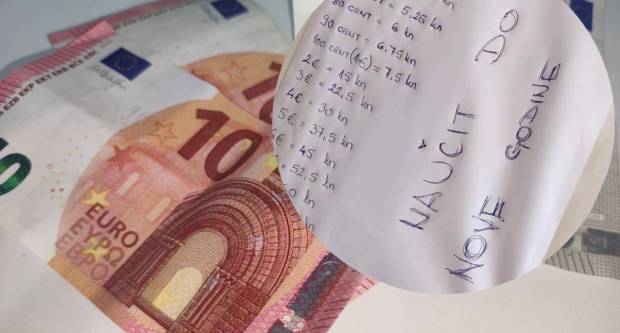 EZB EZP EKT EKB BCE EBC
10
EURO
ΕΥΡΩ
ЕВРО
= 5,25 kn
80 CENT = 6 kn
90 CENT = 6.75 kn
100 CENT (1€) = 7,5 kn
2€ = 15 kn
3€ = 22,5 kn
4€ = 30 kn
5€ = 37,5 kn
€ = 45 kn
= 52,5 kn
0 kn
NAUČIT DO
NOVE GODINE